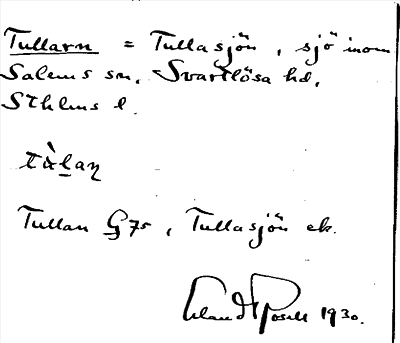 Tullarn = Tullasjön, sjö inom
Salems sn, Svartlösa hd,
Sthlms l.
Tullan G 75, Tullasjön ek.
Erland Rosell 1930.